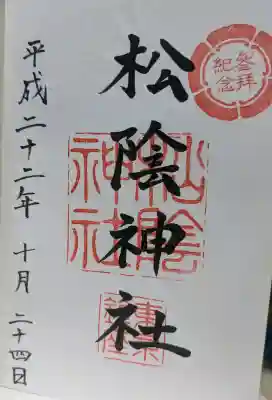 參拜
紀念
松陰神社
松陰
神社
平成二十二年 十月 二十四日